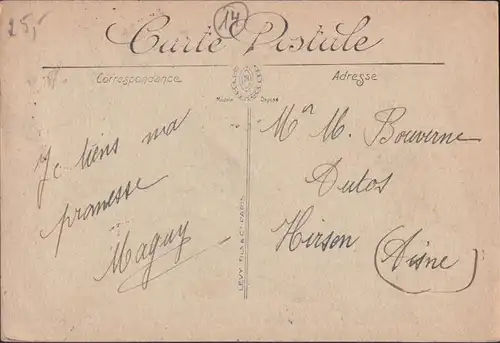 25,-
14
Carte Postale
Correspondance
Adresse
Modèle Déposé
Je tiens ma
promesse
Maguy
LEVY FILS & Cie PARIS
Mr M. Bouverne
Dutos
Hirson (Aisne)